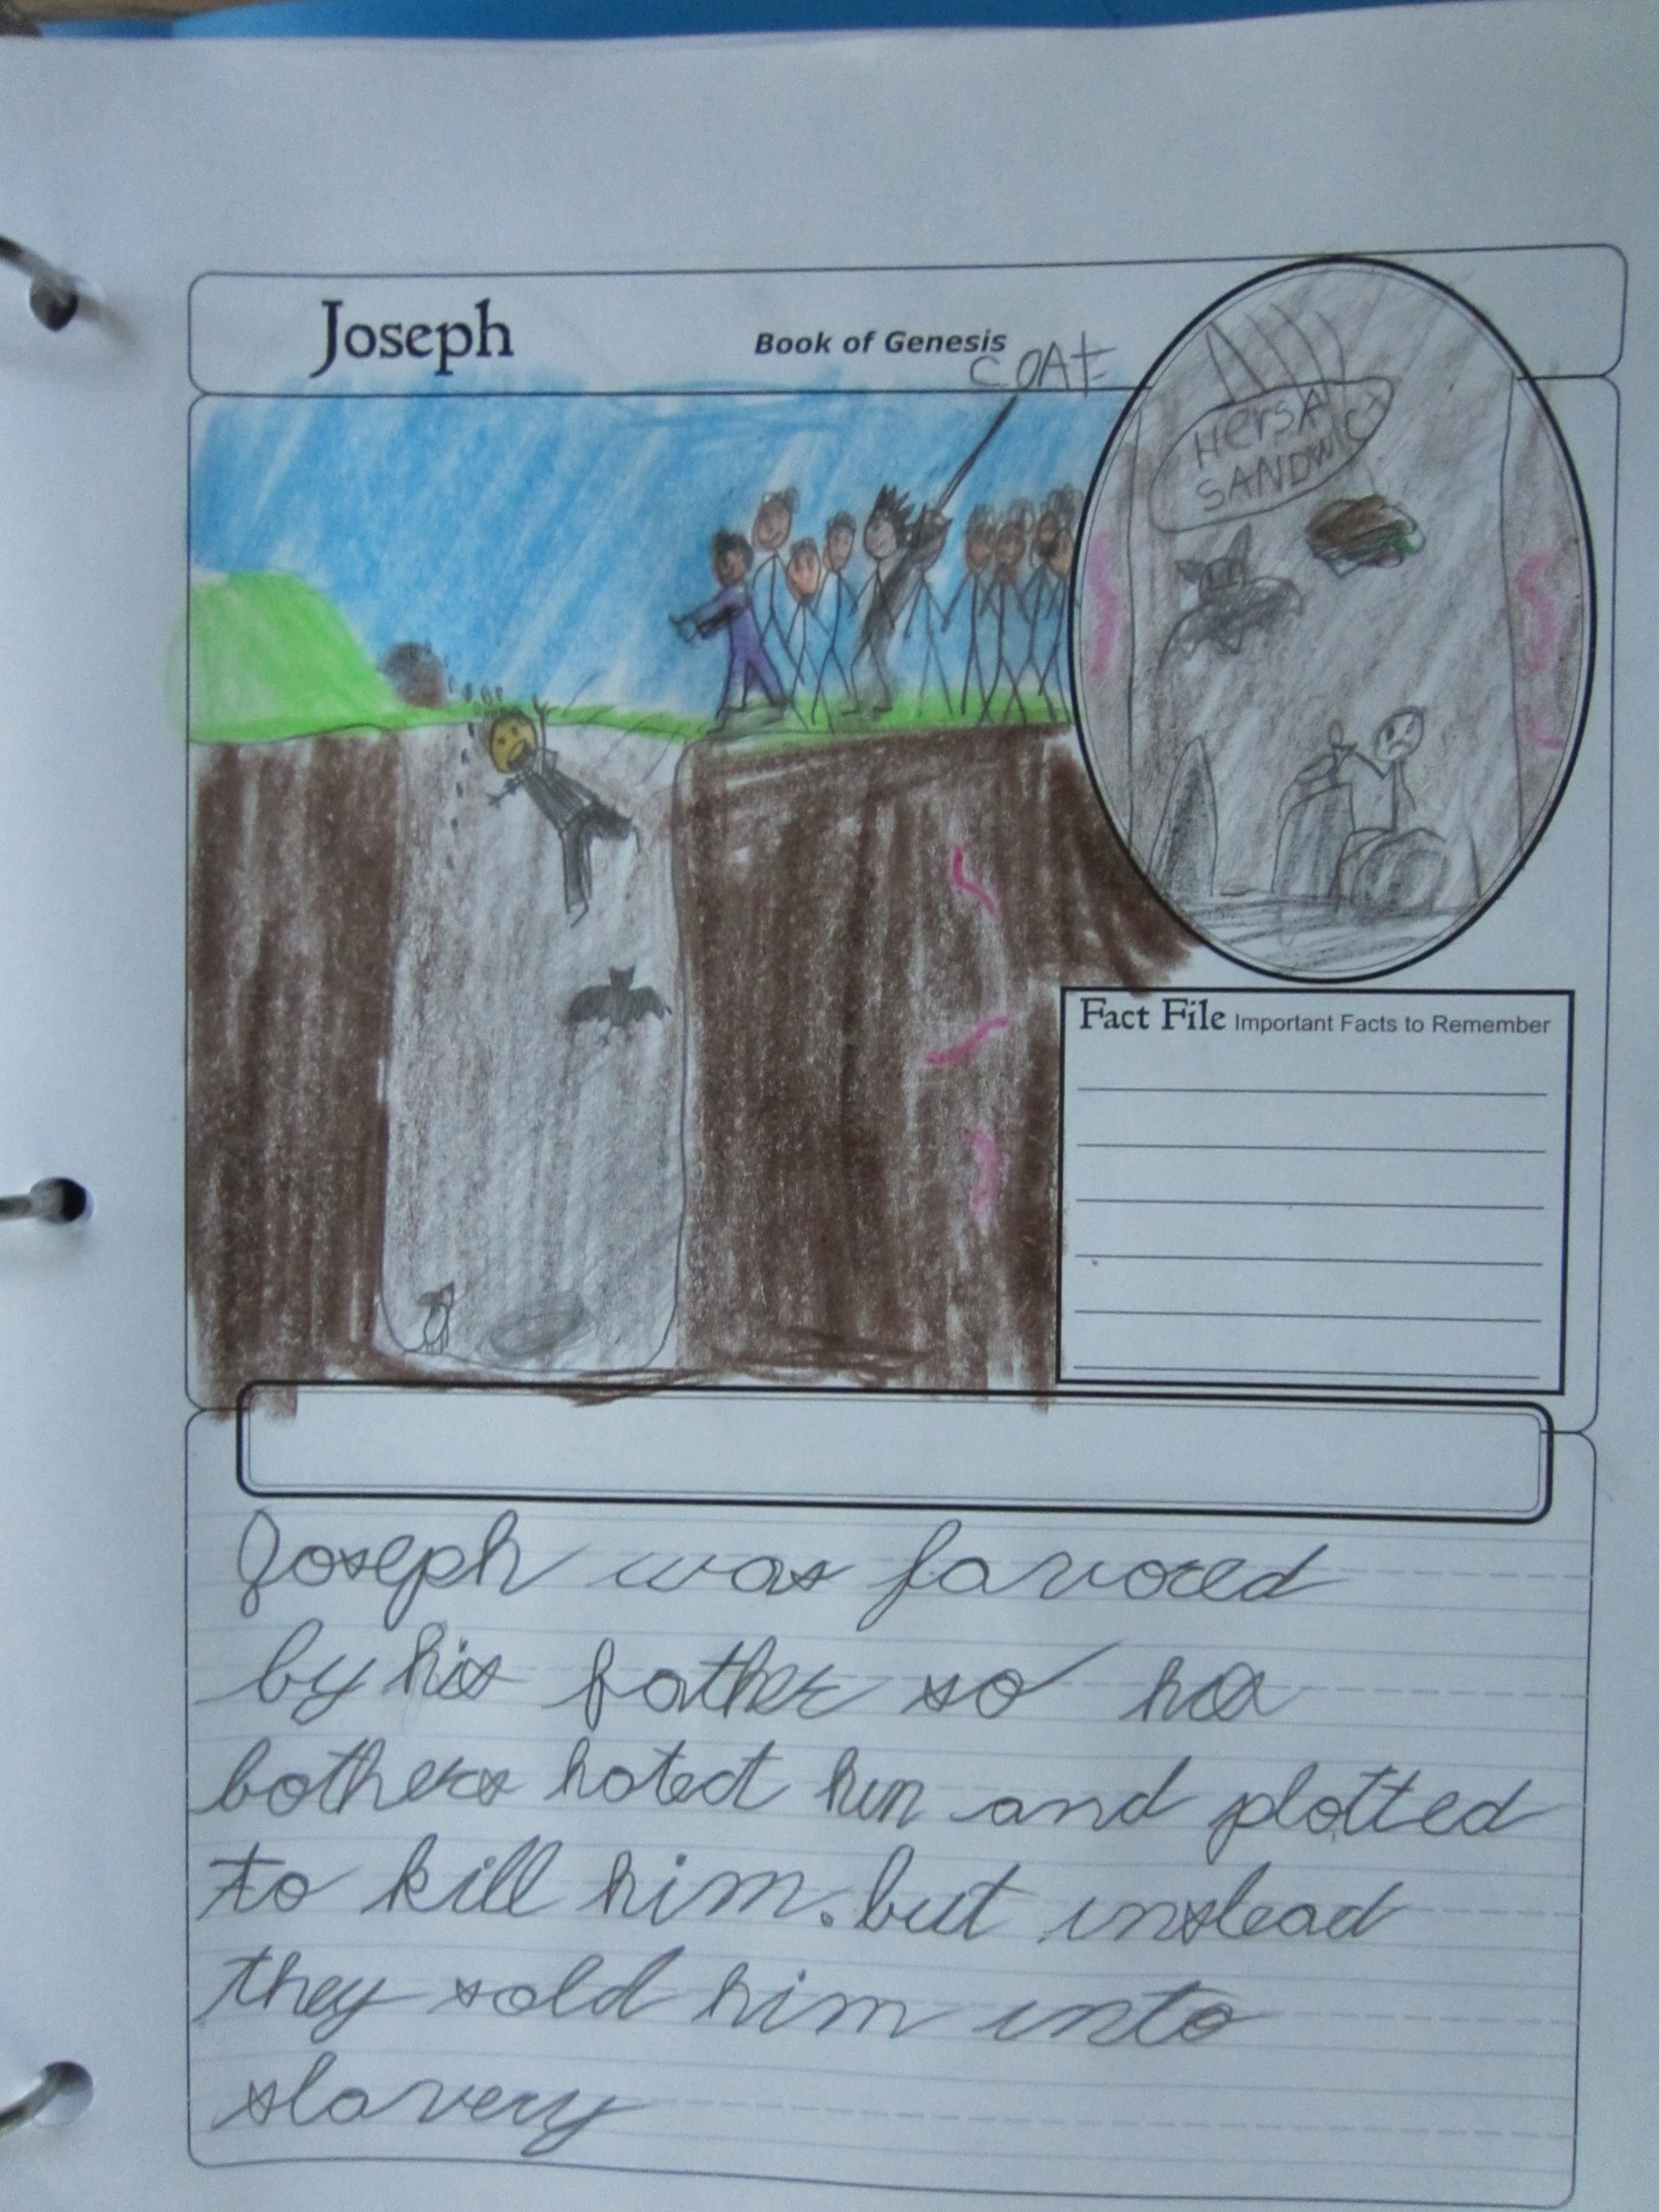 Joseph
Book of Genesis
COAt
HersA
SANDWICh
Fact File Important Facts to Remember
Joseph was favored
by his father so his
bothers hated him and plotted
to kill him. but instead
they sold him into
slavery